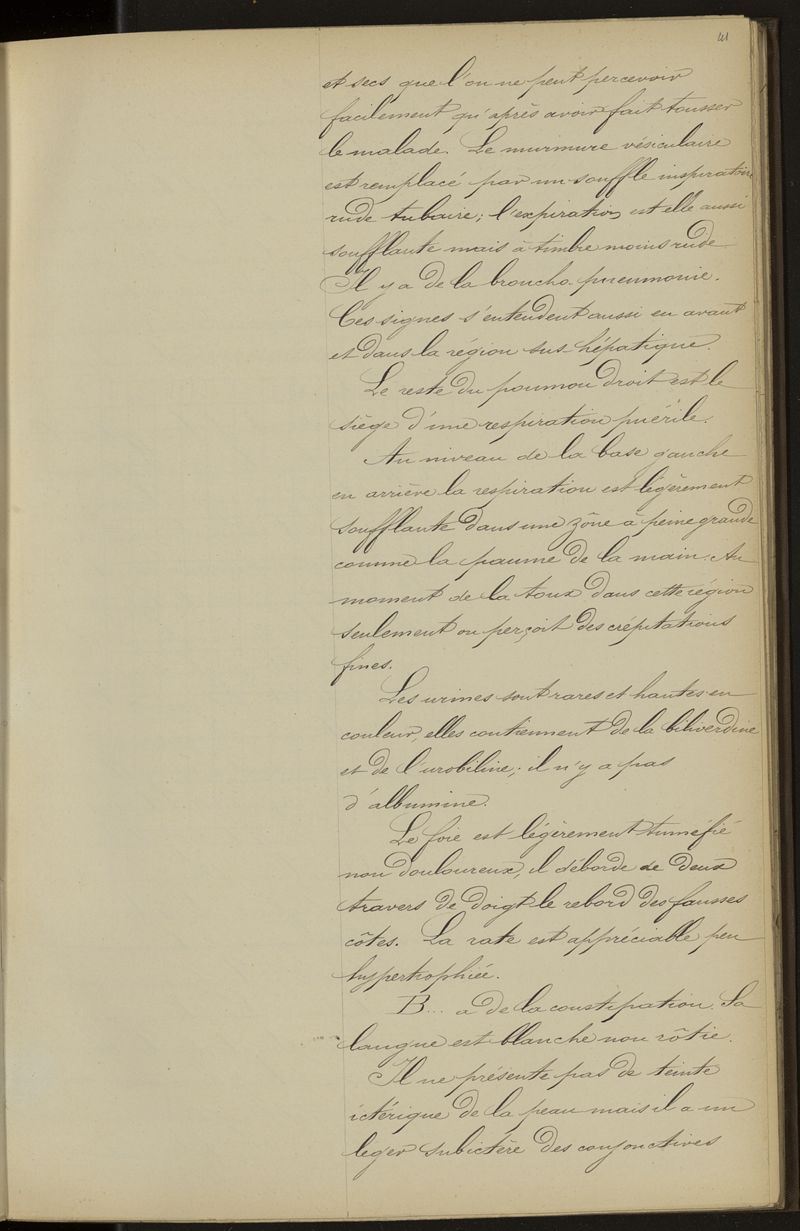 41
et secs que l'on ne peut percevoir
facilement qu'après avoir fait tousser
le malade. Le murmure vésiculaire
est remplacé par un souffle inspiratoire
rude tubaire; l'expiration est elle aussi
soufflante mais à timbre moins rude
Il y a de la broncho-pneumonie.
Ces signes s'entendent aussi en avant
et dans la région sus-hépatique.
Le reste du poumon droit est le
siège d'une respiration puérile.
Au niveau de la base gauche
en arrière la respiration est légèrement
soufflante dans une zône à peine grande
comme la paume de la main. Au
moment de la toux dans cette région
seulement on perçoit des crépitations
fines.
Les urines sont rares et hautes en
couleur, elles contiennent de la biliverdine
et de l'urobiline; il n'y a pas
d'albumine.
Le foie est légèrement tuméfié
non douloureux, il déborde de deux
travers de doigt le rebord des fausses
côtes. La rate est appréciable peu
hypertrophiée.
B... a de la constipation. Sa
langue est blanche non rôtie.
Il ne présente pas de teinte
ictérique de la peau mais il a un
leger subictère des conjonctives